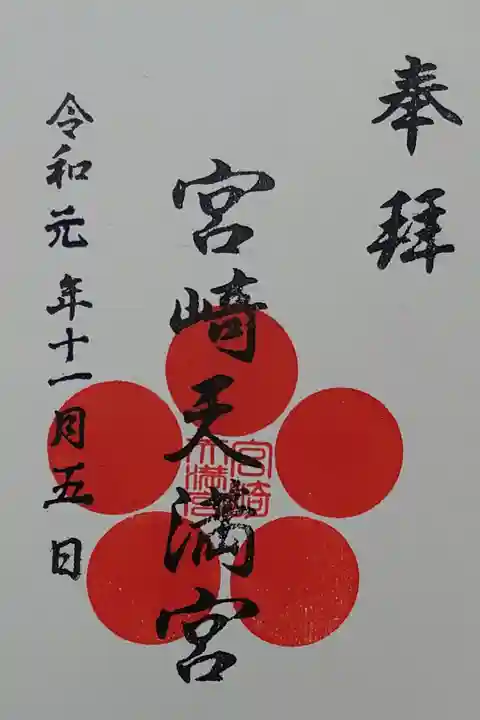 奉拜
宮崎天満宮
令和元年十一月五日
宮崎
天満宮